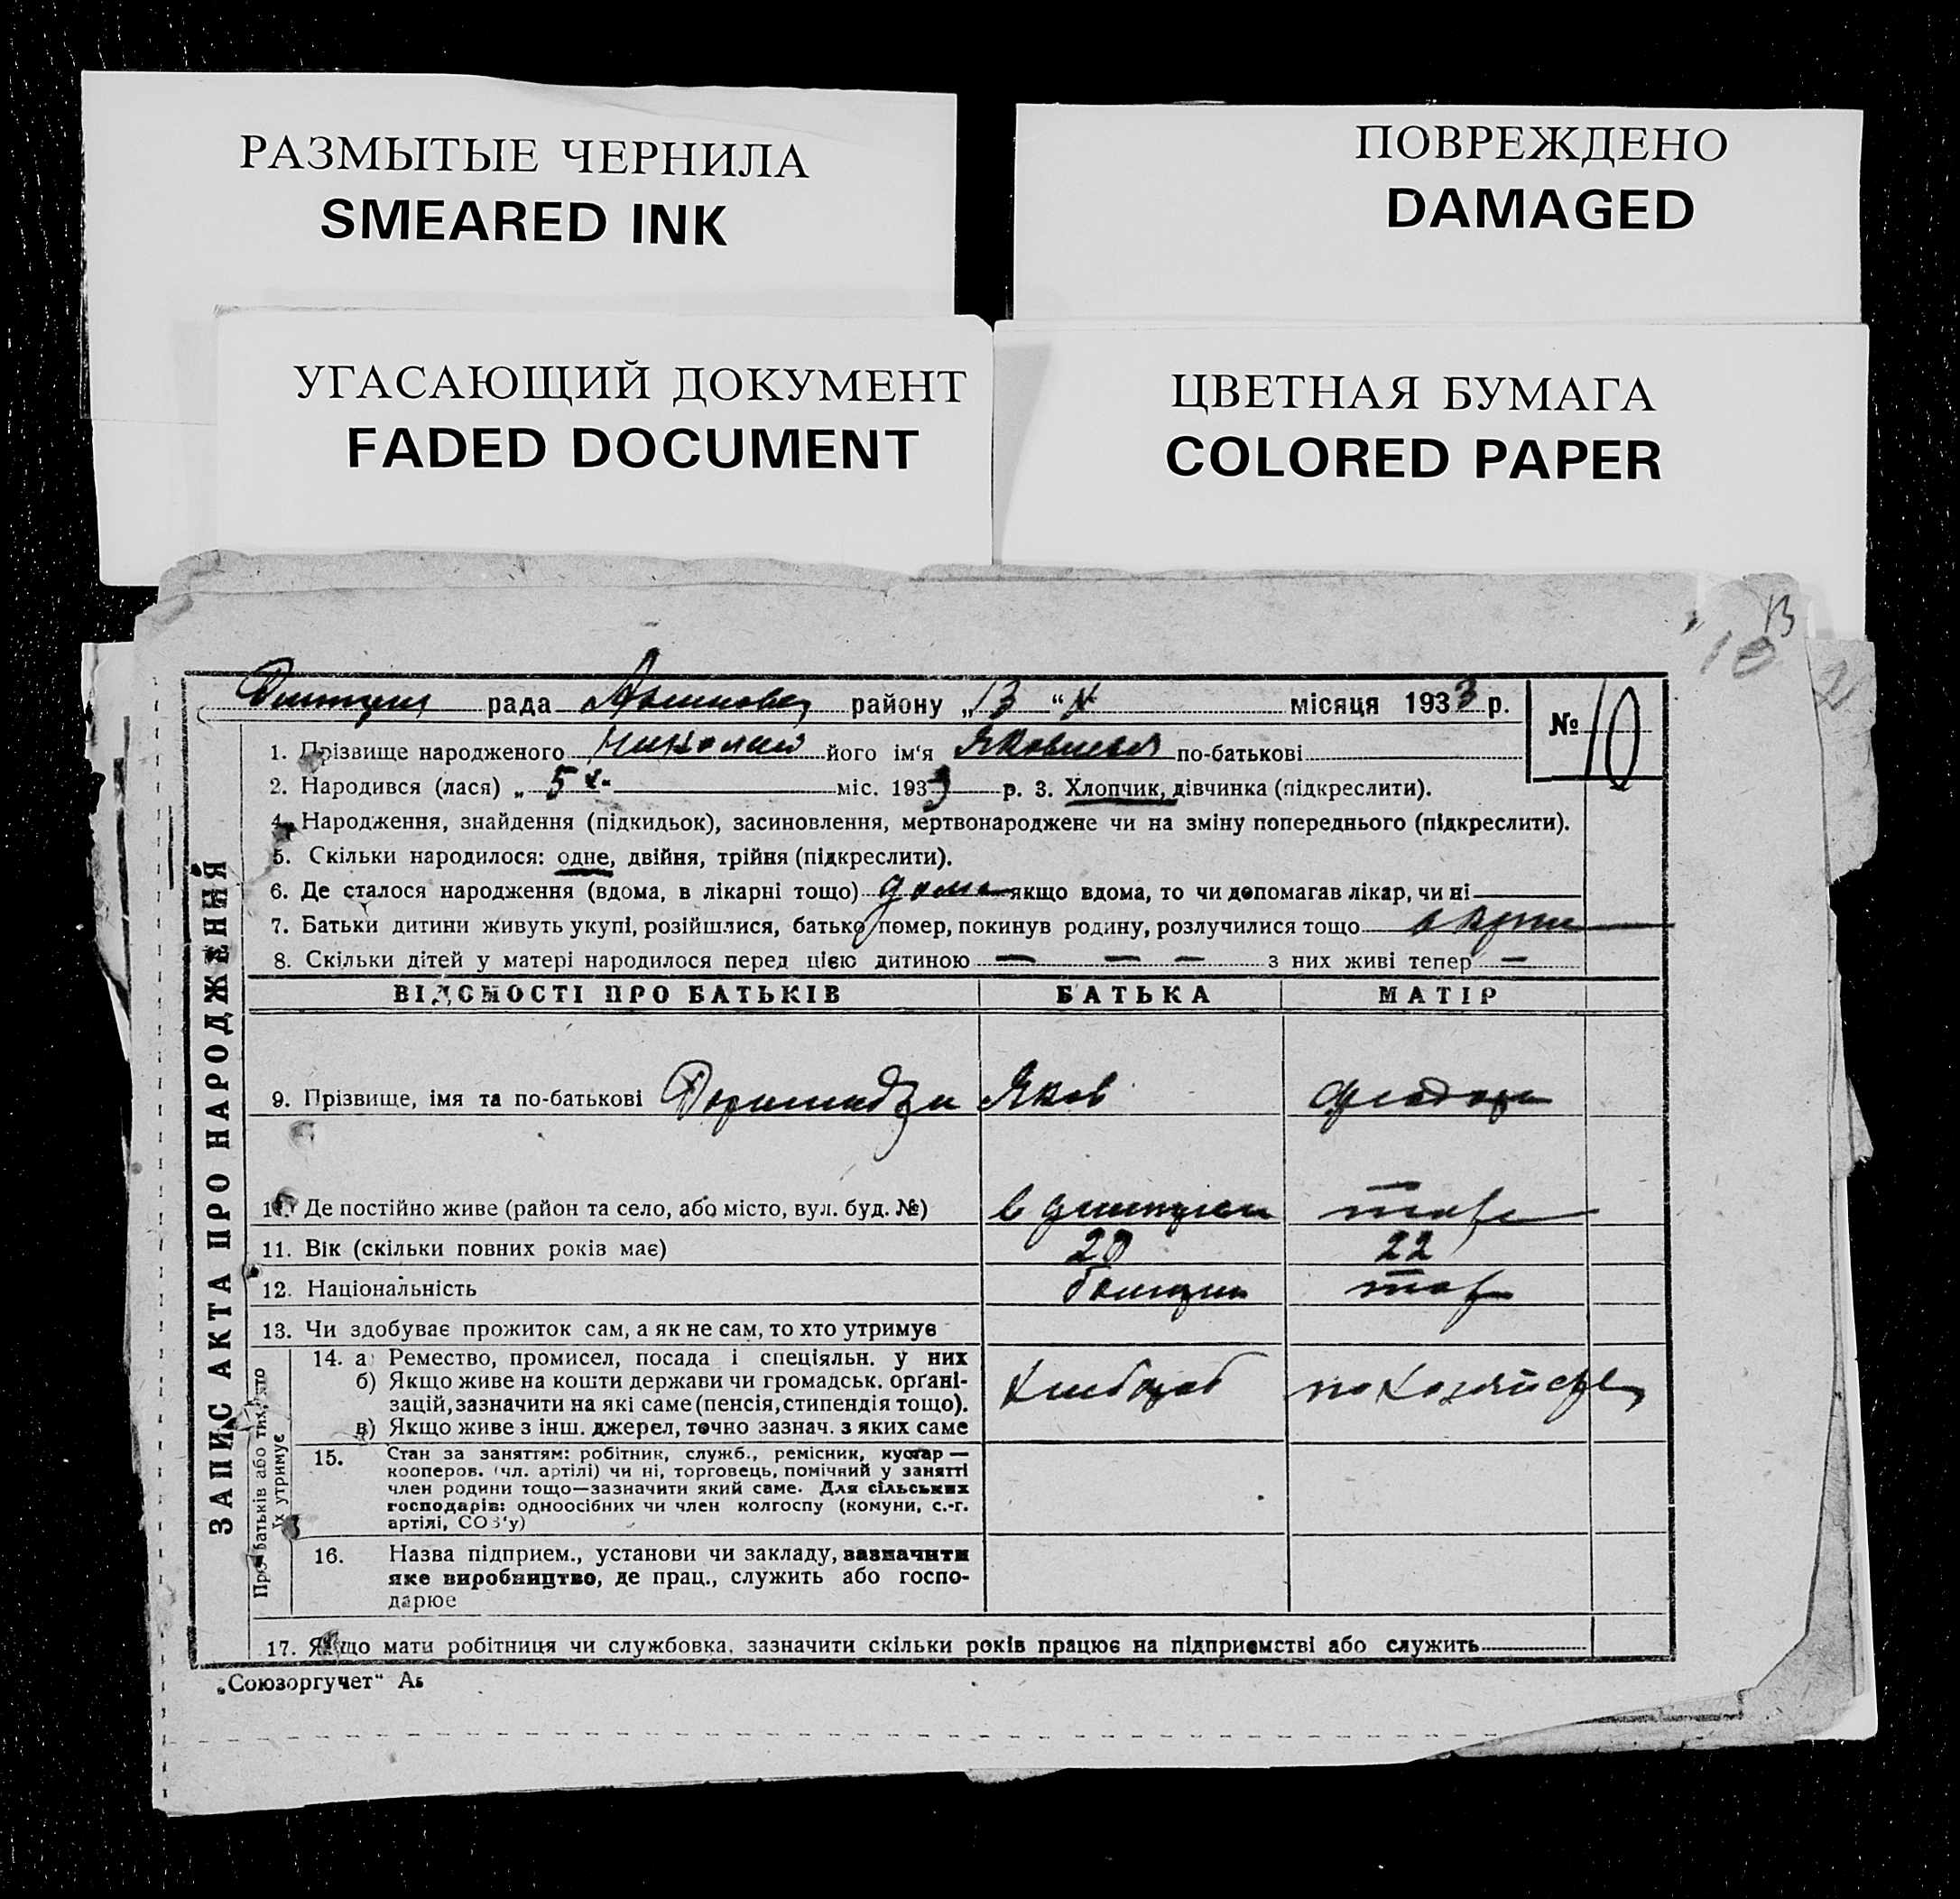 РАЗМЫТЫЕ ЧЕРНИЛА
SMEARED INK
ПОВРЕЖДЕНО
DAMAGED
УГАСАЮЩИЙ ДОКУМЕНТ
FADED DOCUMENT
ЦВЕТНАЯ БУМАГА
COLORED PAPER
13
10
2
рада району „13“ X місяця 1933 р.
№ 10
1. Прізвище народженого Николай його ім‘я Яковлевич по-батькові
2. Народився (лася) „ 5 X міс. 1933 р. 3. Хлопчик, дівчинка (підкреслити).
4. Народження, знайдення (підкидьок), засиновлення, мертвонароджене чи на зміну попереднього (підкреслити).
5. Скільки народилося: одне, двійня, трійня (підкреслити).
6. Де сталося народження (вдома, в лікарні тощо) дома якщо вдома, то чи допомагав лікар, чи ні
7. Батьки дитини живуть укупі, розійшлися, батько помер, покинув родину, розлучилися тощо
8. Скільки дітей у матері народилося перед цією дитиною — — — з них живі тепер —
ВІДОМОСТІ ПРО БАТЬКІВ БАТЬКА МАТІР
9. Прізвище, імя та по-батькові Яков
10. Де постійно живе (район та село, або місто, вул. буд. №) в
11. Вік (скільки повних років має) 20 22
12. Національність
13. Чи здобуває прожиток сам, а як не сам, то хто утримує
14. а) Ремество, промисел, посада і спеціяльн. у них
б) Якщо живе на кошти держави чи громадськ. орґані-
зацій, зазначити на які саме (пенсія, стипендія тощо).
в) Якщо живе з інш. джерел, точно зазнач. з яких саме
Хлебороб
15. Стан за заняттям: робітник, служб., ремісник, кустар —
кооперов. (чл. артілі) чи ні, торговець, помічний у занятті
член родини тощо—зазначити який саме. Для сільських
господарів: одноосібних чи член колгоспу (комуни, с.-г.
артілі, СОЗ‘у)
16. Назва підприєм., установи чи закладу, зазначити
яке виробництво, де прац., служить або госпо-
дарює
17. Якщо мати робітниця чи службовка, зазначити скільки років працює на підприємстві або служить
Про батьків або тих, хто
їх утримує
ЗАПИС АКТА ПРО НАРОДЖЕННЯ
„Союзоргучет“